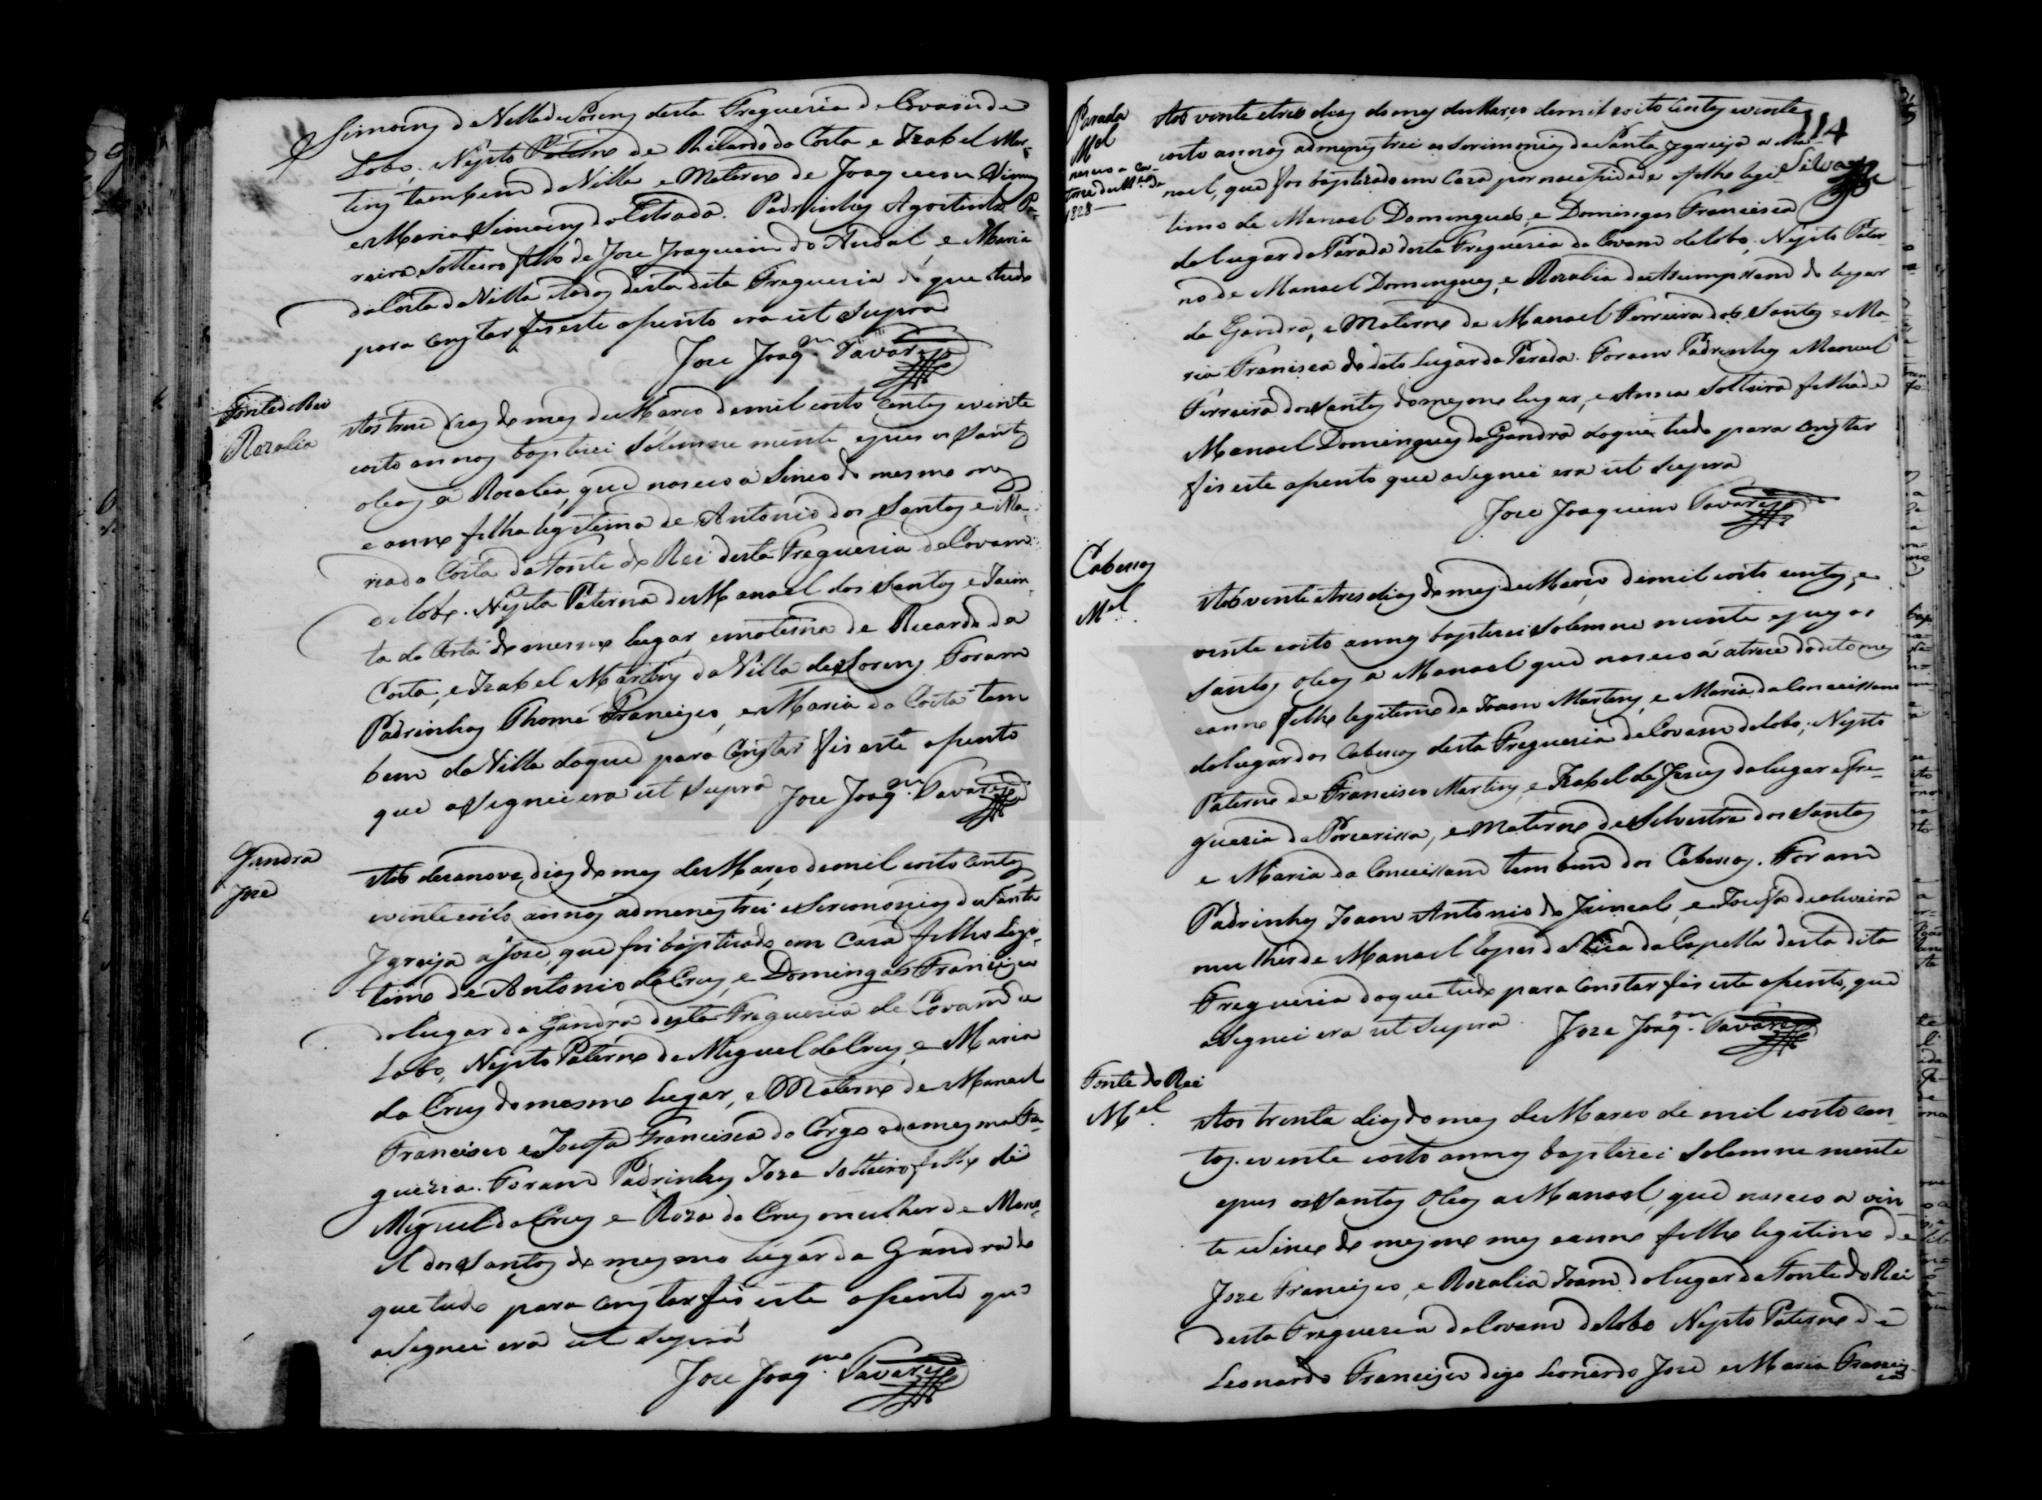 Simoins da Villa de Soreng desta Freguezia de Covam de
Lobo, Nepto Paterno de Ricardo da Costa e Izabel Mar-
tins tambem da Villa e Materno de Joaquim Simoins
e Maria Simoins da Estrada. Padrinhos Agostinho Pe-
reira solteiro filho de Joze Joaquim do Andal, e Maria
da Costa da Villa todos desta dita Freguezia do que tudo
para constar fis este aSento era ut supra
Joze Joaqm. Tavares
Fonte do Rei
Rozalia
Aos treze dias do mes de Março de mil oito centos e vinte
oito annos baptizei Solemne mente e pus os Santos
oleos a Rozalia, que nasceo a Sinco do mesmo mes
e anno filha legitima de Antonio dos Santos e Ma-
ria da Costa da Fonte do Rei desta Freguezia de Covam
de lobo. Nepta Paterna de Manoel dos Santos e Jacin-
ta da Costa do mesmo lugar, e materna de Ricardo da
Costa, e Izabel Martins da Villa de Soreng Foram
Padrinhos Thomé Francisco, e Maria da Costa tam
bem da Villa doque para constar fis este aSento
que aSignei era ut Supra Joze Joaqm. Tavares
Gandra
Joze
Aos dezanove dias do mes de Março de mil oito centos
e vinte oito annos admenistrei as Seremonias da Santa
Igreija a Joze, que foi baptizado em Caza filho legi-
timo de Antonio da Cruz, e Domingas Francisca
do lugar da Gandra desta Freguezia de Covam de
Lobo, Nepto Paterno de Miguel da Cruz, e Maria
da Cruz do mesmo lugar, e Materno de Manoel
Francisco e Josefa Francisca do Corgo da mesma Fre-
guezia. Foram Padrinhos Joze solteiro filho de
Miguel da Cruz e Roza da Cruz mulher de Mano-
el dos Santos do mesmo lugar da Gandra do
que tudo para constar fis este aSento que
aSignei era ut Supra
Joze Joaqm. Tavares
114
Silva
Parada
Mel
nasceo a Ca-
torze de Março de
1828
Aos vinte e tres dias do mes de Março de mil e oito centos e vinte
oito annos admenistrei as Serimonias da Santa Igreija a Ma-
nael, que foi baptizado em Caza por nacesidade filho legi-
timo de Manael Domingues, e Domingas Francisca
do lugar da Parada desta Freguezia da Covam de lobo, Nepto Pater-
no de Manael Domingues, e Rozalia da Asumpssam do lugar
da Gandra, e Materno de Manael Ferreira dos Santos e Ma-
ria Francisca do dito lugar da Parada. Foram Padrinhos Manuel
Ferreira dos Santos do mesmo lugar, e Anna Solteira filha de
Manael Domingues da Gandra doque tudo para constar
fis este aSento que aSignei era ut Supra
Joze Joaquim Tavares
Cabessos
Mel.
Aos vinte e tres dias do mes de Março de mil oito centos, e
vinte oito annos baptizei Solemne mente e pus os
Santos oleos a Manael que nasceo á treze do dito mes
e anno filho legitimo de Joam Martins, e Maria da Conceissam
do lugar dos Cabessos desta Freguezia de Covam de lobo, Nepto
Paterno de Francisco Martins e Izabel de Jezus do lugar e fre-
guezia da Porcarissa, e Materno de Selvestre dos Santos
e Maria da Conceissam tambem dos Cabessos. Foram
Padrinhos Joam Antonio do Juncal, e Josefa de oliveira
mulher de Manael lopes da Vica da Capella desta dita
Freguezia doque tudo para constar fis este aSento, que
aSignei era ut Supra Joze Joaqm. Tavares
Fonte do Rei
Mel.
Aos trinta dias do mes de Março de mil oito cen-
tos. e vinte oito annos baptizei Solemne mente
e pus os Santos oleos a Manael, que nasceo a vin-
te e Sinco do mesmo mes e anno filho legitimo de
Joze Francisco, e Rozalia Joam do lugar da Fonte do Rei
desta Freguezia de Covam de lobo Nepto Paterno de
Leonardo Francisco digo Leonardo Joze e Maria Francis-
ca